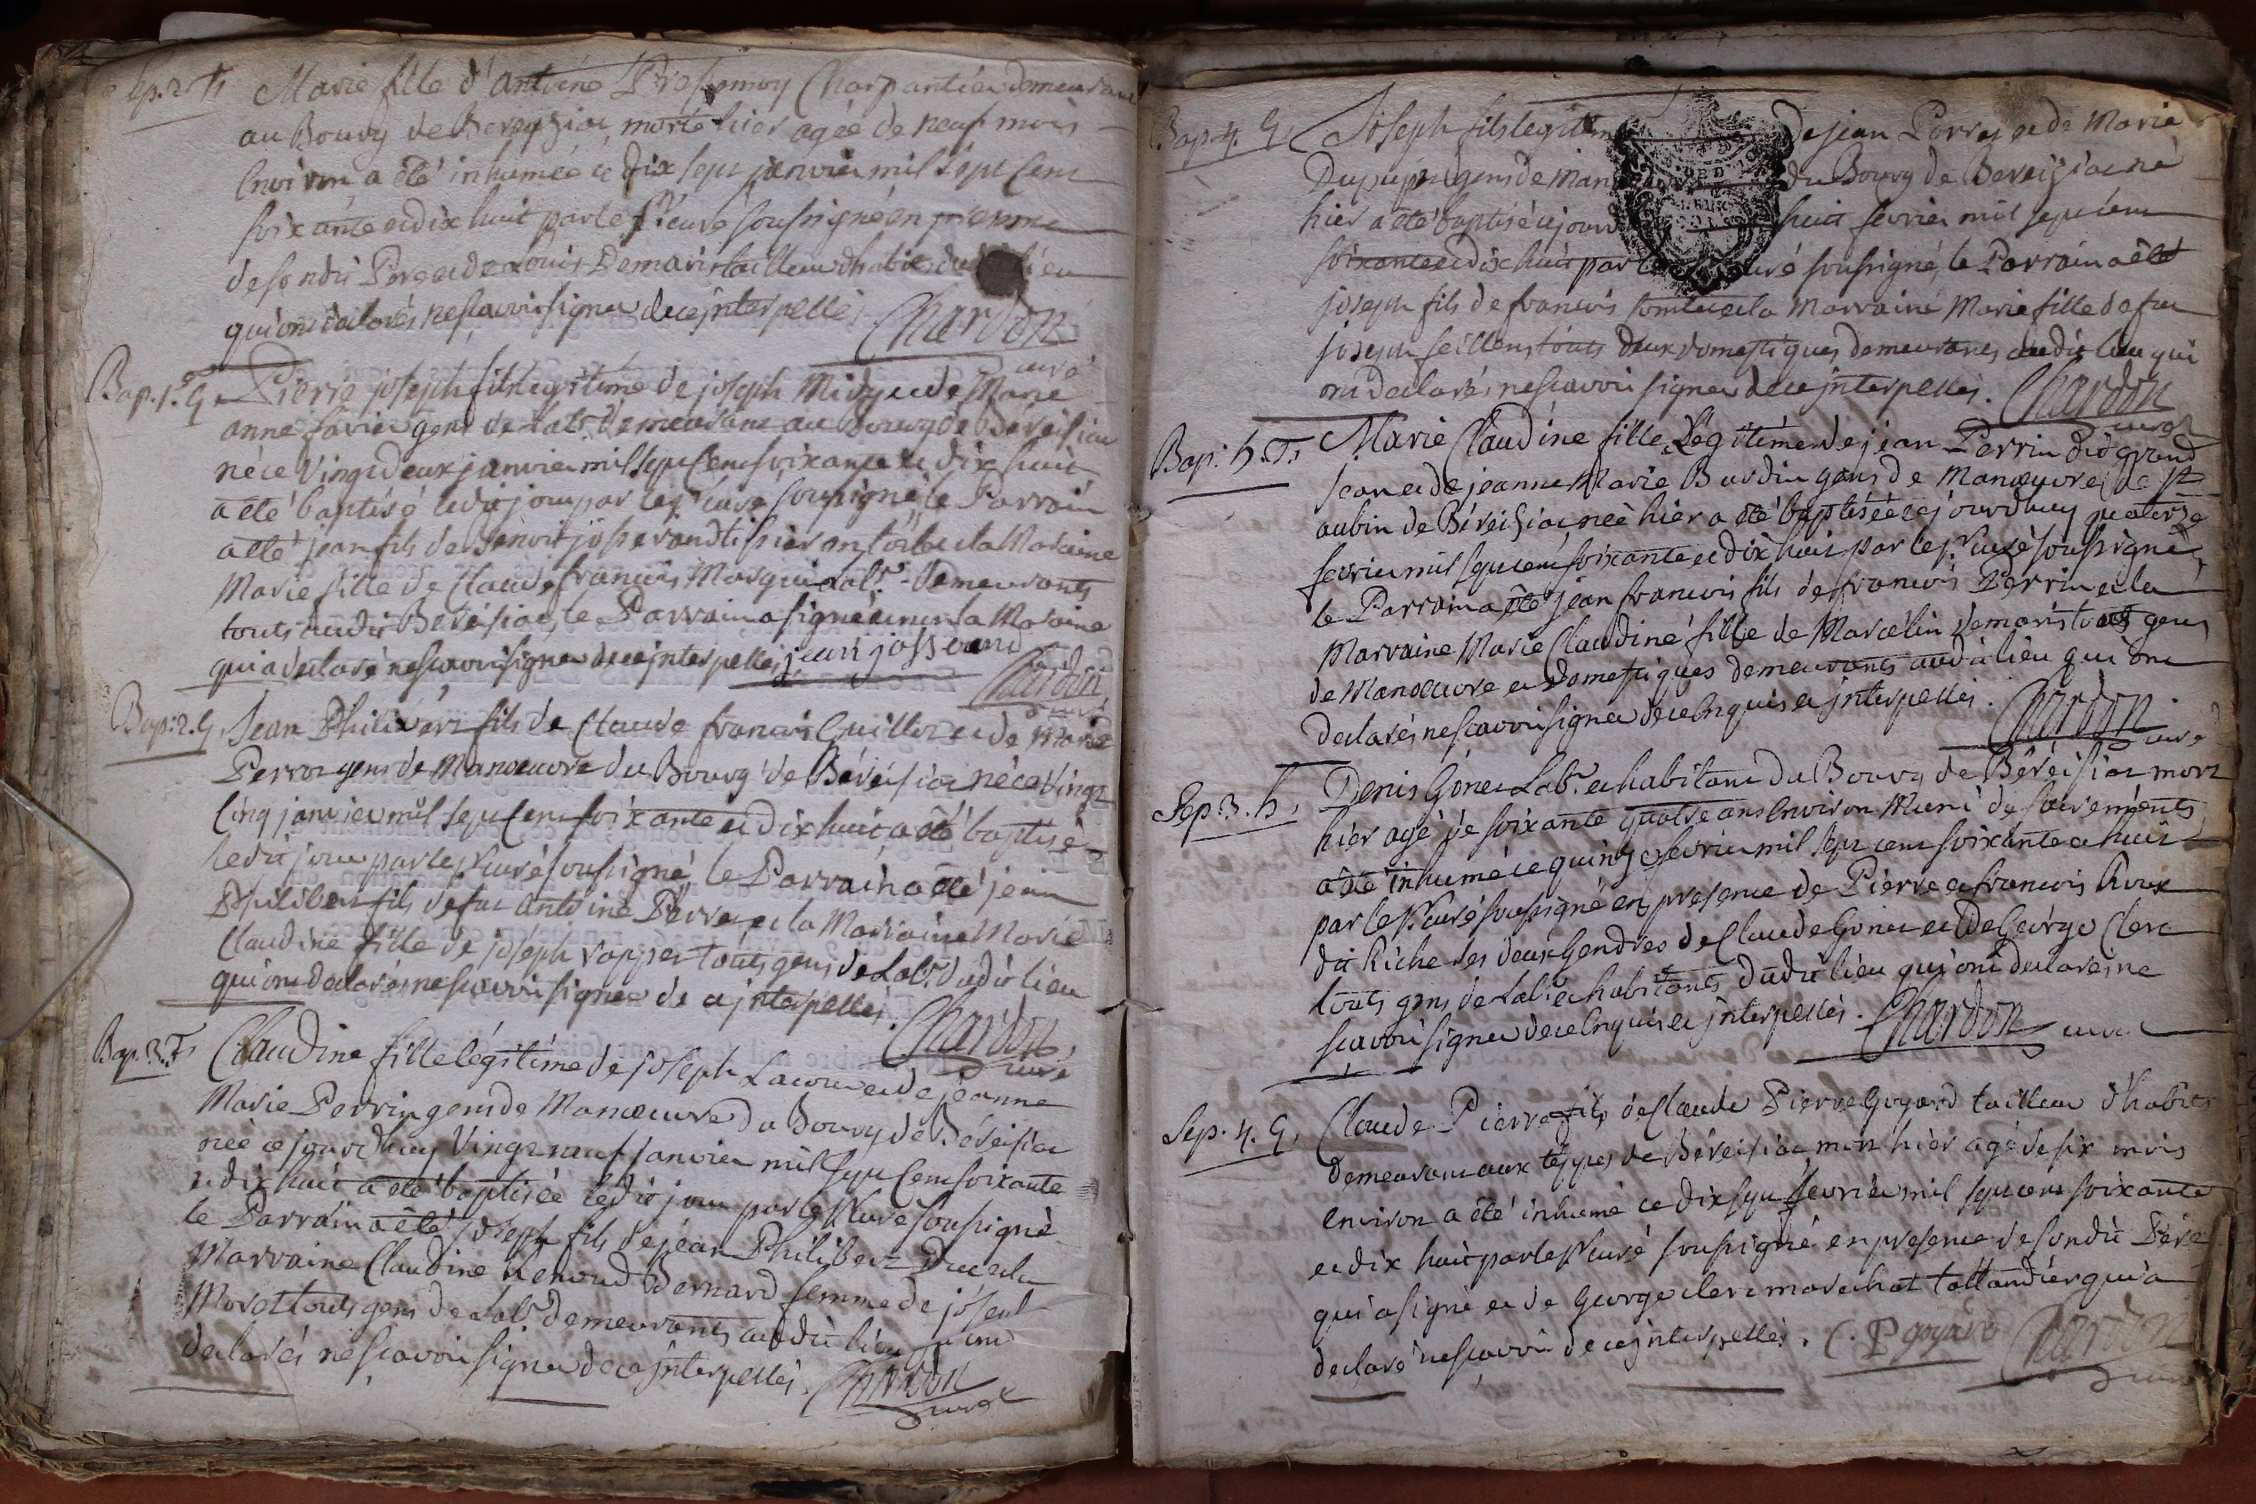 Sep. 2. f.
Marie fille d'Antoine Charpantier demeurant
au Bourg de Bereyziat morte hier agée de neuf mois
Environ a été inhumée ce dix sept janvier mil sept cent
soixante et dix huit par le sr curé soussigné en presence
de son dit Pere et de Louis Demaris tailleur d'habits du lieu
qui ont declarés ne scavoir signer de ce jnterpellés
Chardon
curé
Bap. 1. g.
Pierre joseph fils legitime de joseph et de Marie
anne favier gens de Labr demeurant au Bourg de Béréisiat
né ce Vingt deux janvier mil sept cent soixante et dix huit
a été baptisé ledit jour par le sr curé soussigné, le Parrain
a été jean fils de Benoit josserand et la Maraine
Marie fille de Claude francois Marguin Labr. demeurants
touts audit Béréisiat, le Parrain a signé et non la Maraine
qui a declaré ne scavoir signer de ce jnterpellés jean josserand
Chardon
curé
Bap: 2. g.
Jean Philibert fils de Claude francois Guillot et de Marie
Perrot gens de Manoeuvre du Bourg de Béréisiat né ce Vingt
Cinq janvier mil sept cent soixante et dix huit a été baptisé
ledit jour par le sr curé soussigné, le Parrain a été jean
Philibert fils de feu Antoine Perret et la Marraine Marie
Claudine fille de joseph touts gens de Labr. dudit lieu
qui ont declarés ne scavoir signer de ce jnterpellés
Chardon
curé
Bap. 3. f.
Claudine fille légitime de joseph Lacour et de jeanne
Marie Perrin gens de Manoeuvre du Bourg de Béréisiat
née ce jourdhuy Vingt neuf janvier mil sept cent soixante
et dix huit a été baptisée ledit jour par le sr curé soussigné
le Parrain a été joseph fils de jean Philibert Duc et la
Marraine Claudine Bernard femme de joseph
Morel touts gens de Labr demeurants audit lieu qui ont
declarés ne scavoir signer de ce jnterpellés.
Chardon
curé
Bap. 4. g.
Joseph fils legitime de jean Perret et de Marie
gens de du Bourg de Béréiziat né
hier a été baptisé ce jourd huit fevrier mil sept cent
soixante et dix huit par le curé soussigné, le Parrain a été
joseph fils de francois et la Marraine Marie fille de feu
joseph touts deux domestiques demeurants audit lieu qui
ont declarés ne scavoir signer de ce jnterpellés.
Chardon
curé
Bap: 5. f.
Marie Claudine fille Légitime de jean Perrin dit grand
jean et de jeanne Marie Burdin gens de Manoeuvre de St
aubin de Béréiziat née hier a été baptisée ce jourdhuy quatorze
fevrier mil sept cent soixante et dix huit par le sr curé soussigné
le Parrain a été jean francois fils de francois Perrin et la
Marraine Marie Claudine fille de Marcelin Demaris touts gens
de Manoeuvre et domestiques demeurants audit lieu qui ont
declarés ne scavoir signer de ce Enquis et jnterpellés.
Chardon
curé
Sep. 3. h.
Denis Gonet Labr. et habitant du Bourg de Béréisiat mort
hier agé de soixante quatre ans Environ Muni de sacrements
a été inhumé ce quinze fevrier mil sept cent soixante et huit
par le sr curé soussigné en presence de Pierre et francois Roux
dit Riche les deux Gendres de Claude Gonet et de George Clerc
touts gens de Labr. et habitants dudit lieu qui ont declarés ne
scavoir signer de ce Enquis et jnterpellés.
Chardon curé
Sep. 4. g.
Claude Pierre fils de Claude Pierre Goyard tailleur d'habits
demeurant aux teppes de Béréisiat mort hier agé de six mois
environ a été inhumé ce dix sept fevrier mil sept cent soixante
et dix huit par le sr curé soussigné en presence de son dit Père
qui a signé et de George clerc marechal taillandier qui a
declaré ne scavoir de ce jnterpellés. C. P goyard
Chardon
curé